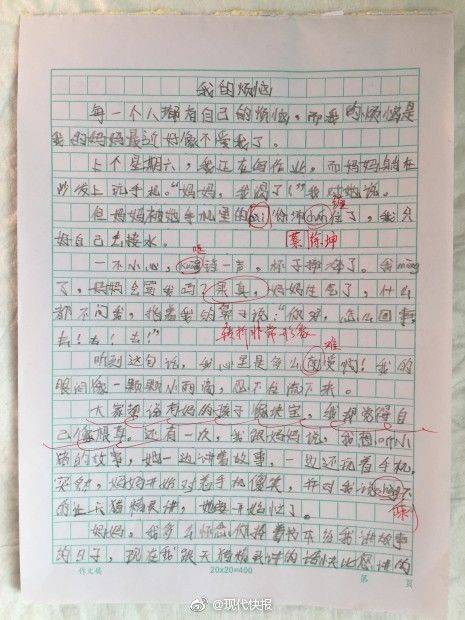 我的烦恼
每一个人都有自己的烦恼，而我的烦恼是
我的妈妈最近好像不爱我了。
上个星期六，我正在写作业，而妈妈躺在
沙发上玩手机。“妈妈，我渴了！”我对她说。
但妈妈被她手机里的 你 住了，我只
缠
好自己去接水。
蔡徐坤
一不小心， 一声，杯子摔碎了。我
了，妈妈会骂我吗？果真，妈妈生气了，什么
都不问我，指着我的鼻子说：“你呀，怎么回事，
去！去！去！”
转折非常形象
难
听到这句话，我心里是多么 受啊！我的
眼泪像一颗颗小雨滴，忍不住流下来。
大家都说有妈的孩子像块宝，我却觉得自
己像根草。还有一次，我跟妈妈说，我想听小
猪的故事，她一边讲着故事，一边还玩着手机，
突然，妈妈开始对着手机傻笑，并对我说
让天猫精灵讲，她
陈
妈妈，我多么怀念你捧着书本给我讲故事
的日子，现在我跟天猫精灵讲的话快比您讲的
作文稿
20x20=400
第 页
@现代快报